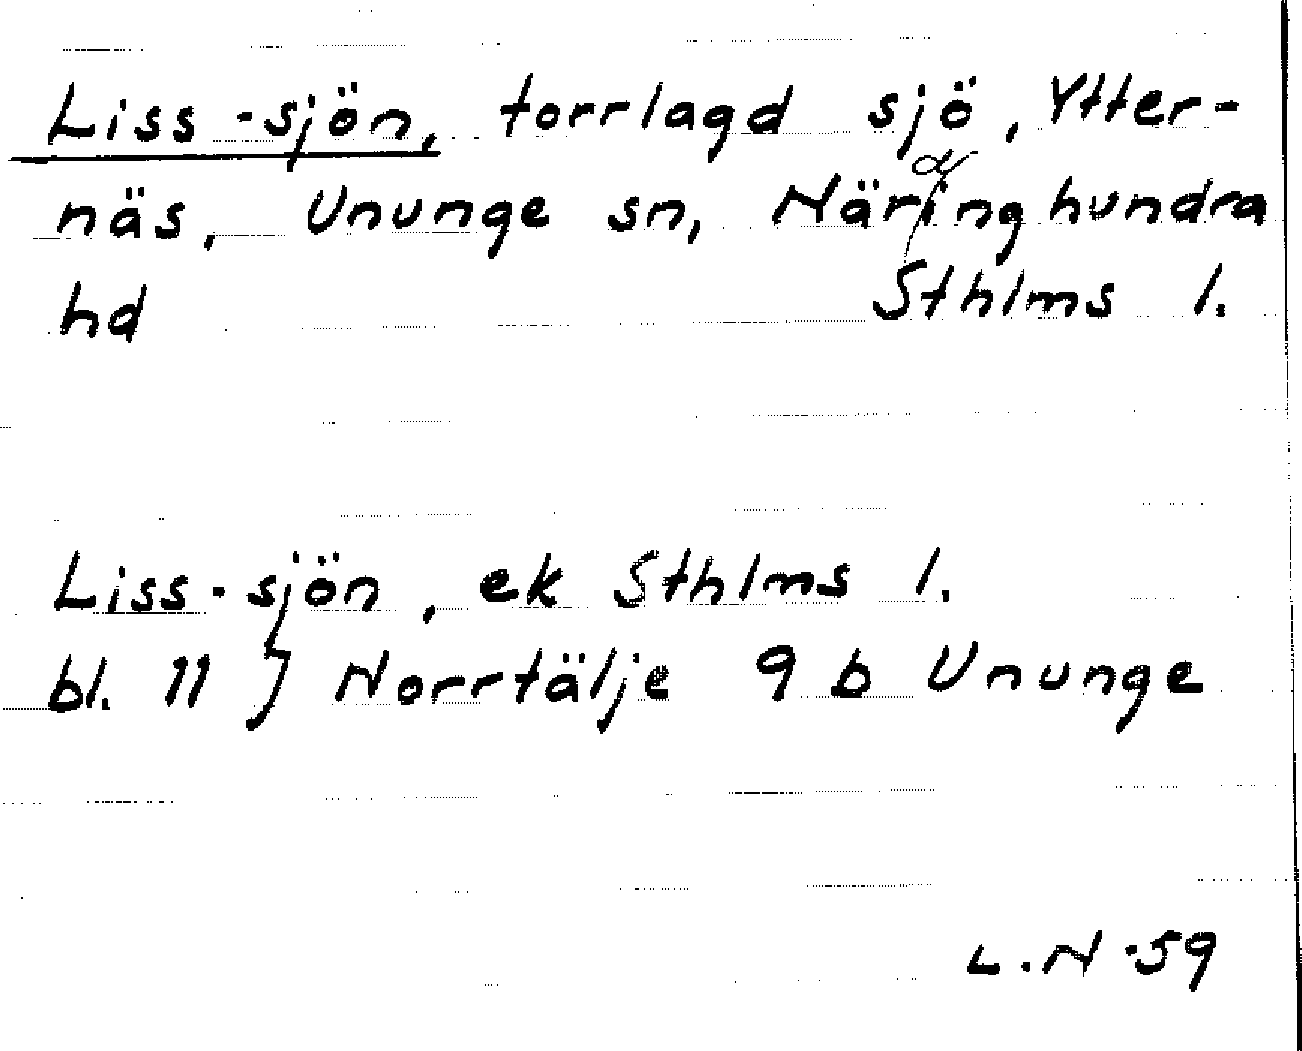 Liss-sjön, torrlagd sjö, Ytter-
näs, Ununge sn, Näringhundra
hd Sthlms l.
Liss-sjön, ek Sthlms l.
bl. 11 J Norrtälje 9 b Ununge
L.N -59